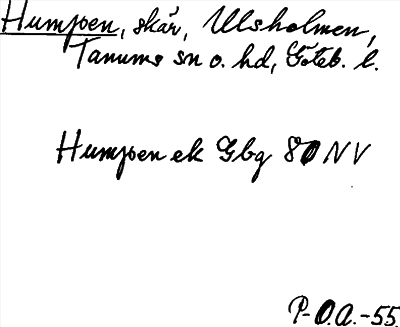 Humpen, skär, Ulsholmen,
Tanums sn o. hd, Göteb. l.
Humpen ek Gbg 80 NV
P-O.A.-55